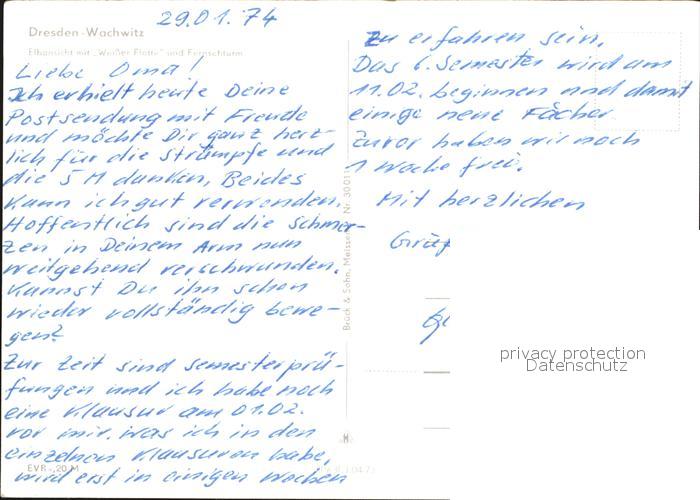 29.01.74
Dresden-Wachwitz
Elbansicht mit „Weißer Flotte" und Fernsehturm
Liebe Oma!
Ich erhielt heute Deine
Postsendung mit Freude
und möchte Dir ganz herz-
lich für die Strümpfe und
die 5 M danken, Beides
kann ich gut verwenden.
Hoffentlich sind die Schmer-
zen in Deinem Arm nun
weitgehend verschwunden.
Kannst Du ihn schon
wieder vollständig bewe-
gen?
Zur Zeit sind Semesterprü-
fungen und ich habe noch
eine Klausur am 01.02.
vor mir. Was ich in den
einzelnen Klausuren habe,
wird erst in einigen Wochen
EVP -,20 M
Brück & Sohn, Meissen Nr. 30011
zu erfahren sein.
Das 6. Semester wird am
11.02. beginnen und damit
einige neue Fächer.
Zuvor haben wir noch
1 Woche frei.
Mit herzlichen
privacy protection
Datenschutz